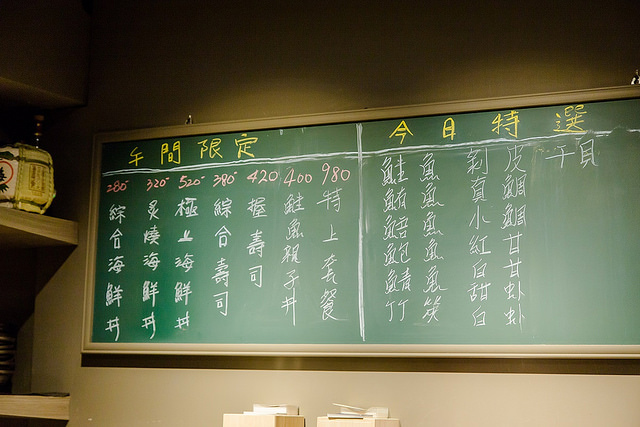 午間限定
280 綜合海鮮丼
320 炙燒海鮮丼
520 極上海鮮丼
380 綜合壽司
420 握壽司
400 鮭魚親子丼
980 特上套餐
今日特選
鮭魚
鮪魚
魚
鮑魚
鯖魚
竹筴
剝皮
真鯛
小鯛
紅甘
白甘
甜虾
白虾
干貝